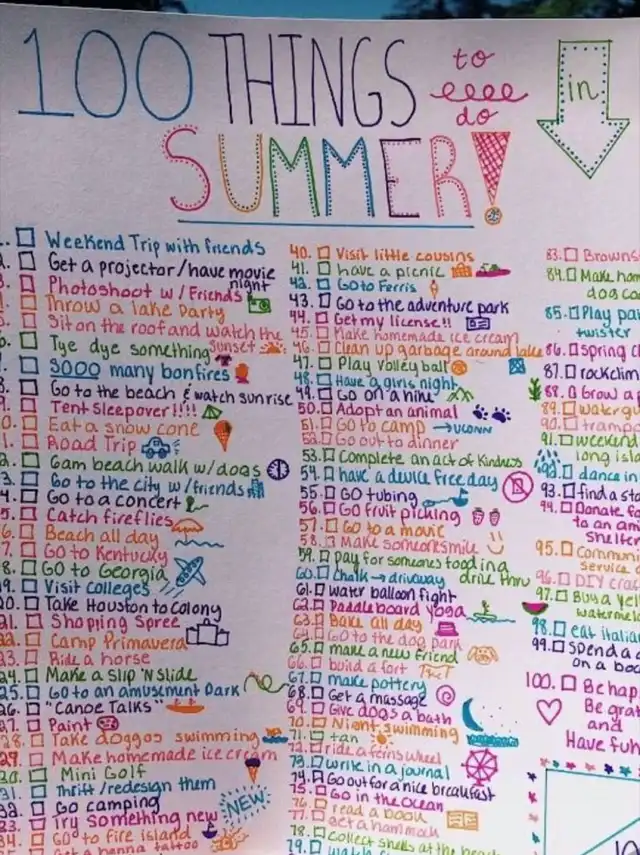 100 THINGS to do in
SUMMER!
☐ Weekend Trip with friends
☐ Get a projector/have movie night
☐ Photoshoot w/ Friends
☐ Throw a lake Party
☐ Sit on the roof and watch the sunset
☐ Tye dye something
☐ SOOO many bonfires
☐ Go to the beach & watch sunrise
☐ Tent Sleepover!!!!
☐ Eat a snow cone
☐ Road Trip
☐ 6am beach walk w/ dogs
☐ Go to the city w/ friends
☐ Go to a concert
☐ Catch fireflies
☐ Beach all day
☐ Go to Kentucky
☐ Go to Georgia
☐ Visit Colleges
20. ☐ Take Houston to Colony
21. ☐ Shopping Spree
22. ☐ Camp Primavera
23. ☐ Ride a horse
24. ☐ Make a slip 'n slide
25. ☐ Go to an amusement Park
26. ☐ "Canoe Talks"
27. ☐ Paint
28. ☐ Take doggos swimming
29. ☐ Make homemade ice cream
☐ Mini Golf
31. ☐ Thrift/redesign them
32. ☐ Go camping
33. ☐ Try something new
NEW!
34. ☐ GO to fire island
☐ Get a henna tattoo
40. ☐ Visit little cousins
41. ☐ have a picnic
42. ☐ Go to Ferris
43. ☐ Go to the adventure park
44. ☐ Get my license!!
45. ☐ Make homemade ice cream
46. ☐ Clean up garbage around lake
47. ☐ Play Volley ball
48. ☐ Have a girls night
49. ☐ Go on a hike
50. ☐ Adopt an animal
51. ☐ Go to camp → UCONN
52. ☐ Go out to dinner
53. ☐ Complete an act of Kindness
54. ☐ have a device free day
55. ☐ GO tubing
56. ☐ GO fruit picking
57. ☐ Go to a movie
58. ☐ Make someone smile
59. ☐ pay for someones food in a drive thru
60. ☐ Chalk → driveway
61. ☐ water balloon fight
62. ☐ Paddleboard yoga
63. ☐ Bake all day
64. ☐ GO to the dog park
65. ☐ make a new friend
66. ☐ build a fort
67. ☐ make pottery
68. ☐ Get a massage
69. ☐ Give dogs a bath
70. ☐ Night swimming
71. ☐ tan
72. ☐ ride a ferris wheel
73. ☐ write in a journal
74. ☐ Go out for a nice breakfast
75. ☐ Go in the Ocean
76. ☐ read a book
77. ☐ get a hammock
78. ☐ Collect shells at the beach
79. ☐
83. ☐ Browns
84. ☐ Make hom
dog ca
85. ☐ Play pai
twister
86. ☐ Spring c
87. ☐ rockclim
88. ☐ Grow a
89. ☐ watergu
90. ☐ trampo
91. ☐ weekend
long isla
92. ☐ dance in
93. ☐ find a sto
94. ☐ Donate fo
to an an
shelter
95. ☐ Commun
service
96. ☐ DIY cra
97. ☐ Buy a yel
watermelo
98. ☐ eat itali
99. ☐ Spend a d
on a boa
100. ☐ Be hap
Be grat
and
Have fun